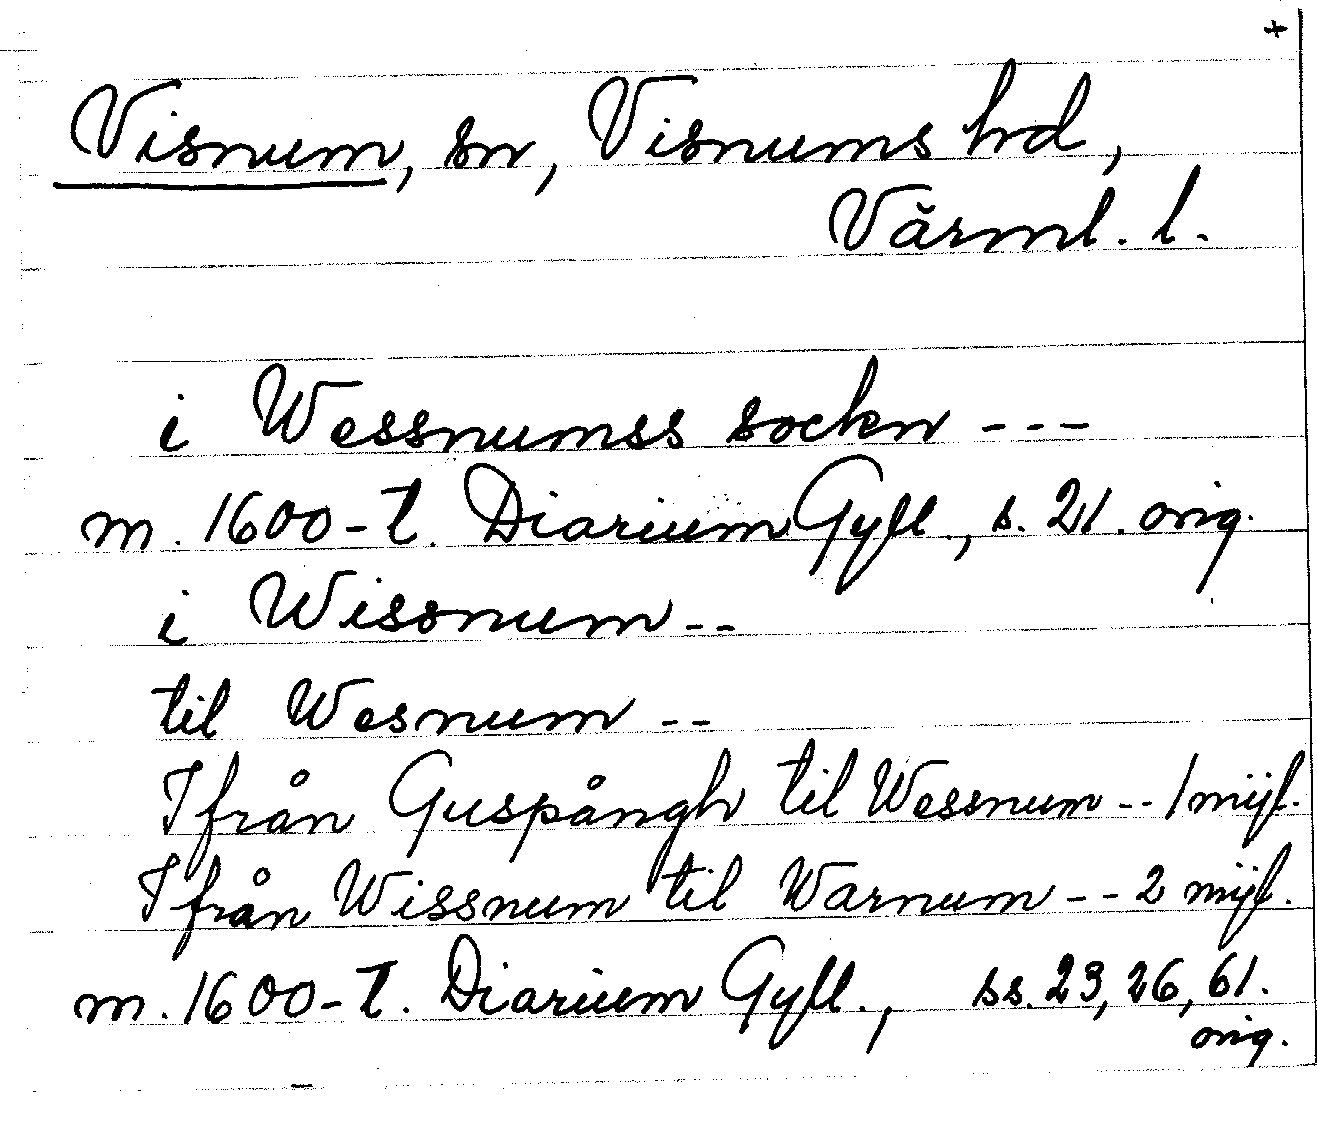 +
Visnum, sn, Visnums hd,
Värml. l.
i Wessnumss sockn ---
m. 1600-t. Diarium Gyll., s. 21. orig.
i Wissnum --
til Wesnum --
Ifrån Guspångh til Wessnum -- 1 mijl.
Ifrån Wissnum til Warnum -- 2 mijl.
m. 1600-t. Diarium Gyll., ss. 23, 26, 61.
orig.